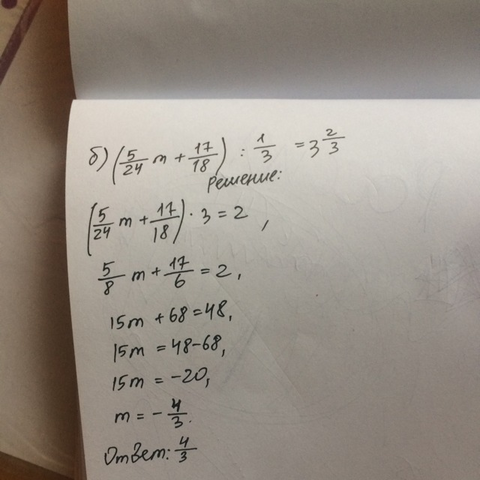 б) (5/24 m + 17/18) : 1/3 = 3 2/3
Решение:
(5/24 m + 17/18) · 3 = 2,
5/8 m + 17/6 = 2,
15m + 68 = 48,
15m = 48-68,
15m = -20,
m = - 4/3.
Ответ: 4/3